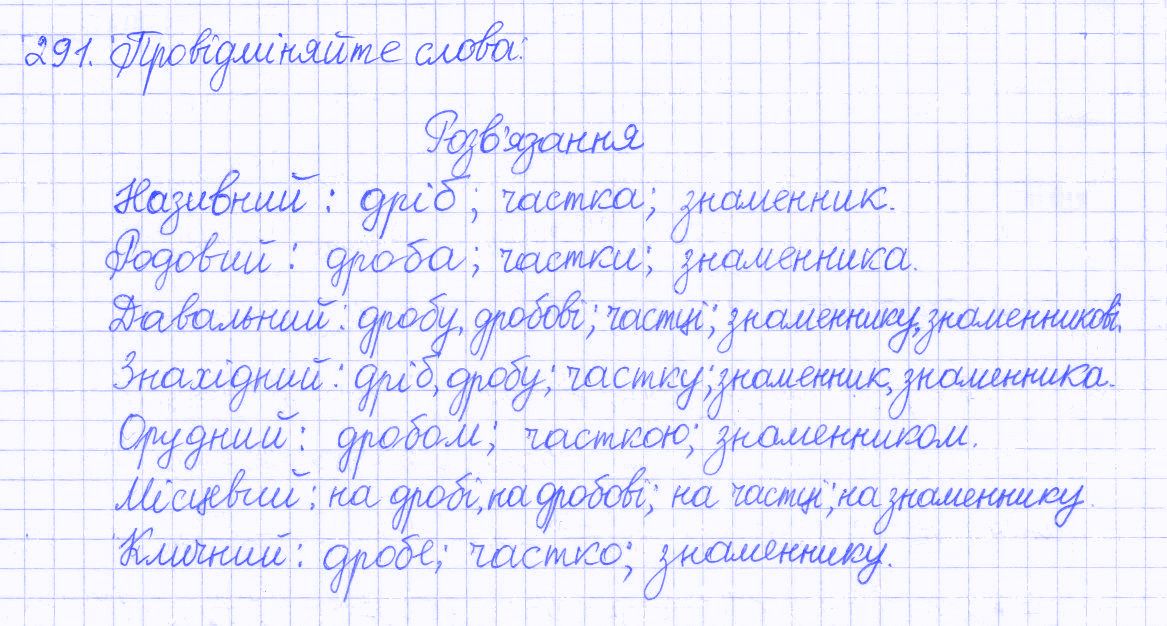 291. Провідміняйте слова:
Розв'язання
Називний: дріб; частка; знаменник.
Родовий: дроба; частки; знаменника.
Давальний: дробу, дробові; частці; знаменнику, знаменникові.
Знахідний: дріб, дробу; частку; знаменник, знаменника.
Орудний: дробом; часткою; знаменником.
Місцевий: на дробі, на дробові; на частці; на знаменнику.
Кличний: дробе; частко; знаменнику.